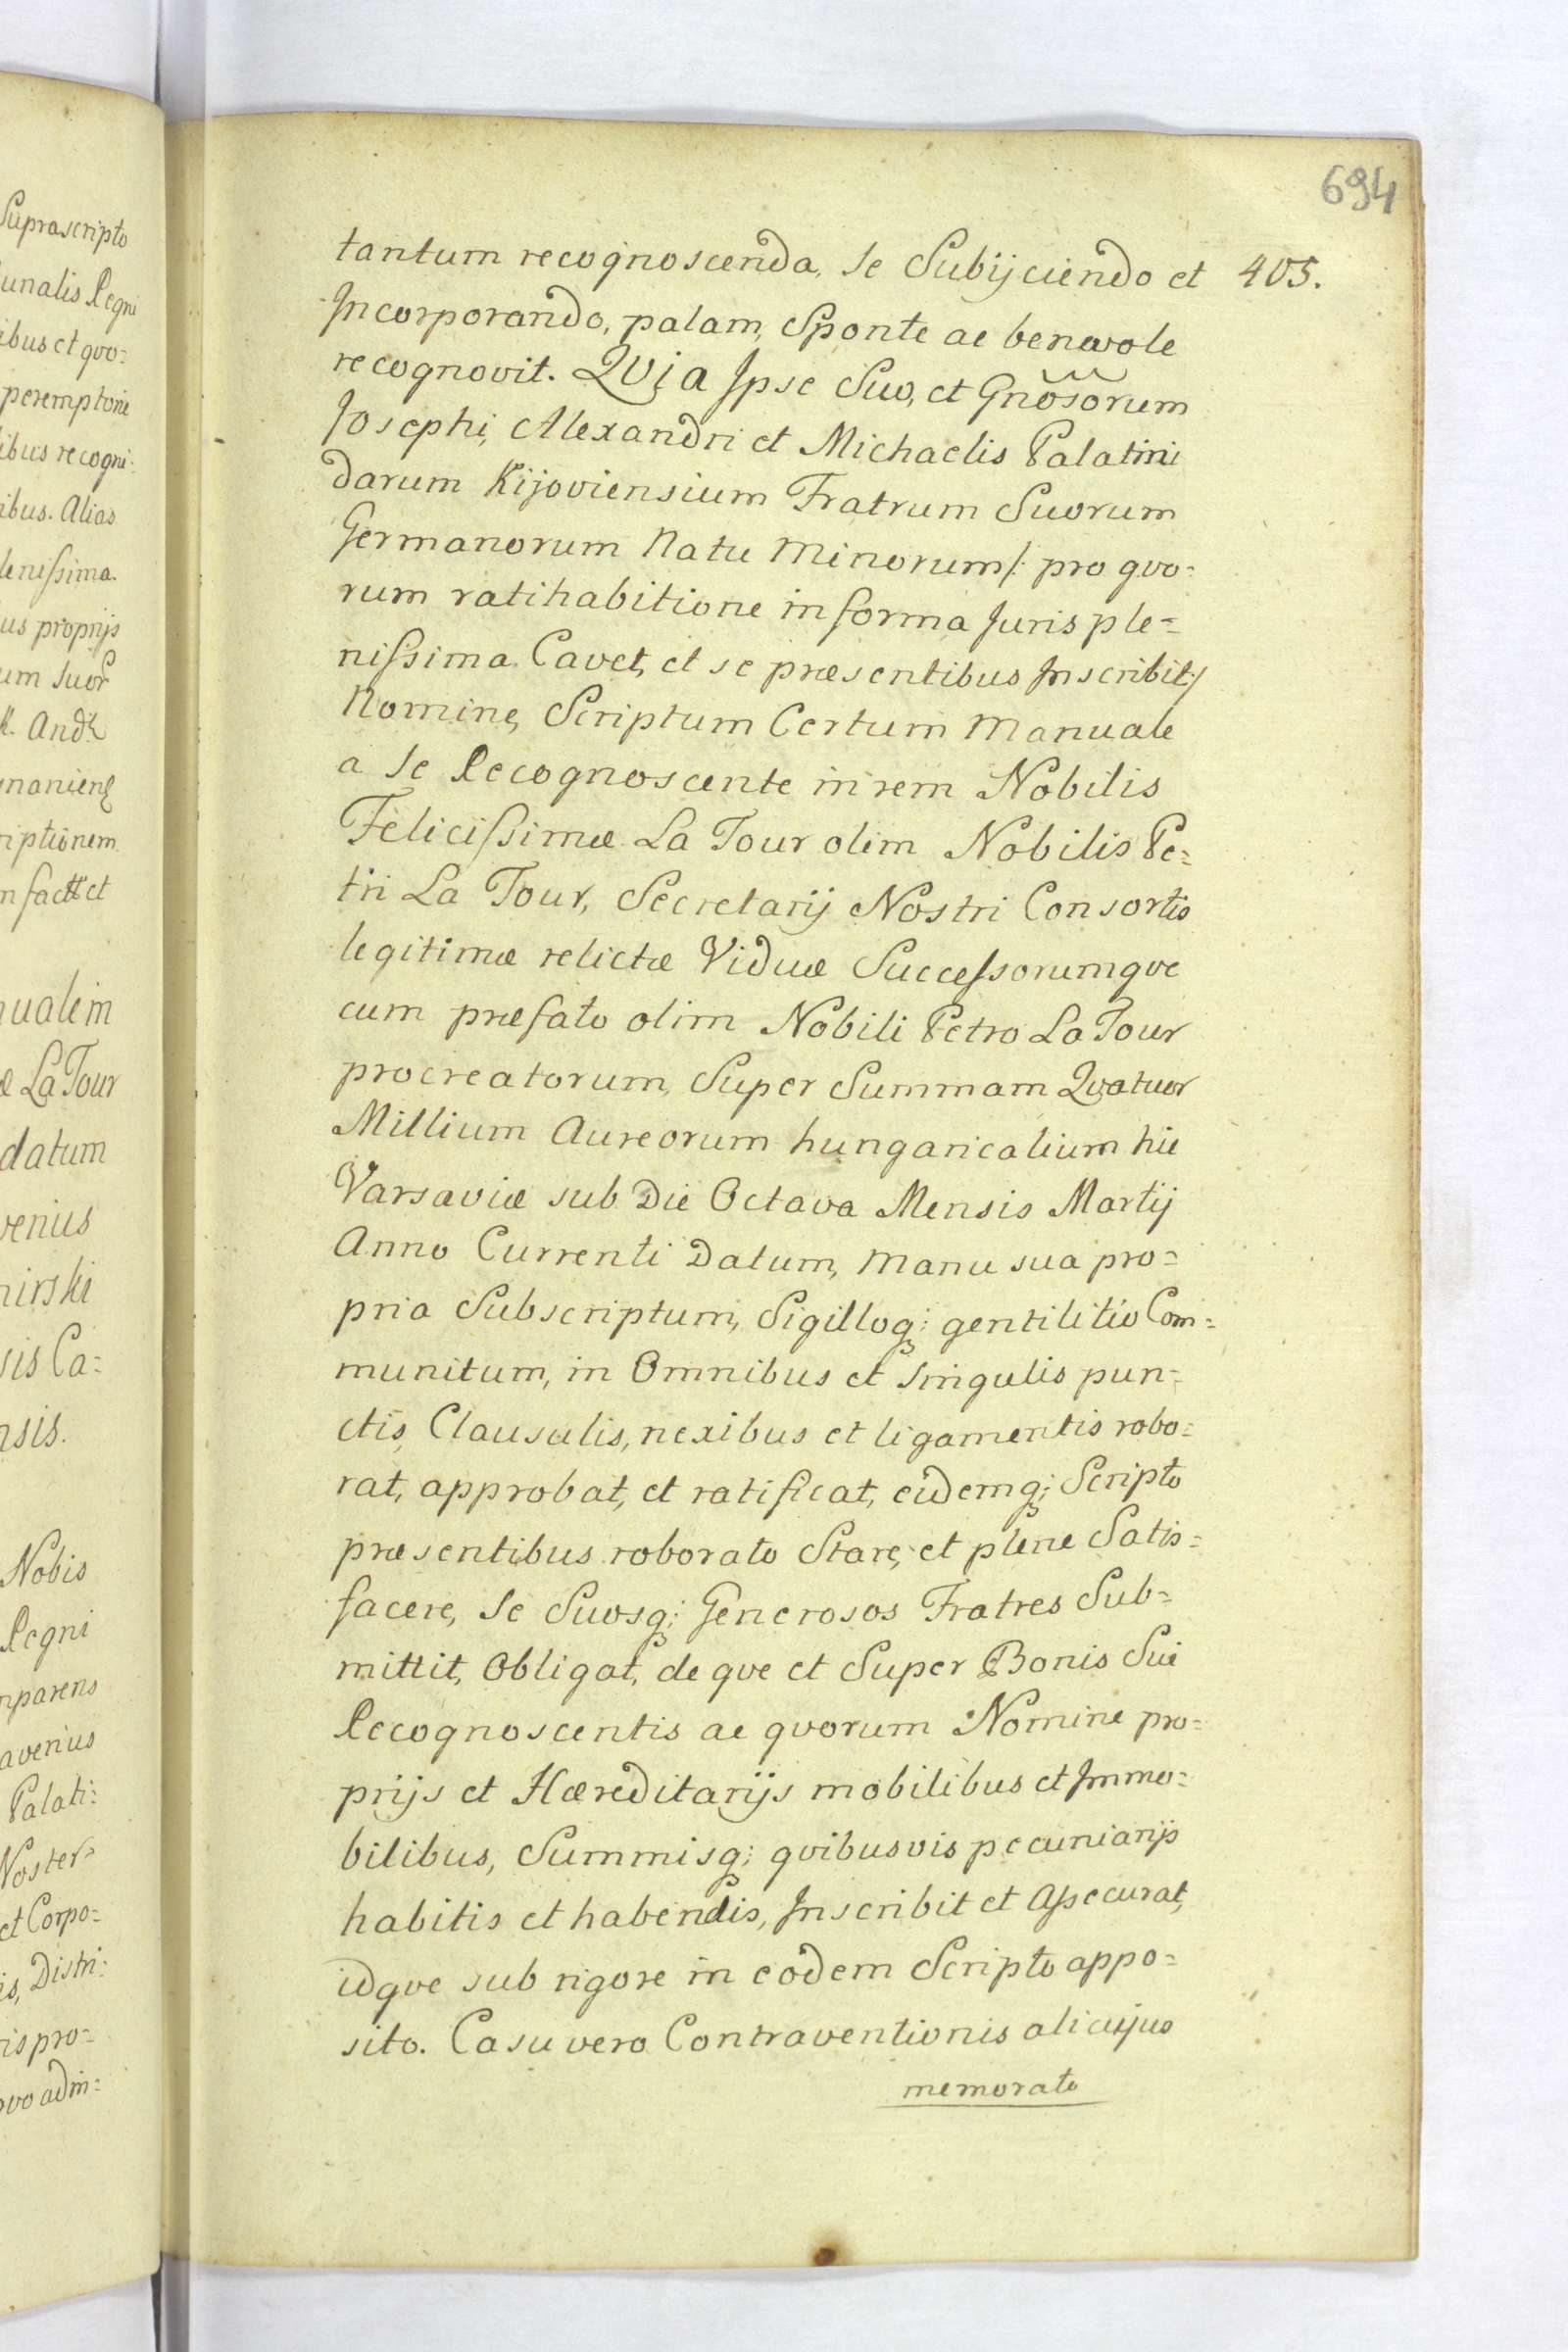 694
405.
tantum recognoscenda, se Subijciendo et
Incorporando, palam, Sponte ac benevole
recognovit. QVia Ipse Suo, et Gnosorum
Josephi, Alexandri et Michaelis Palatini
darum Kijoviensium Fratrum Suorum
Germanorum Natu Minorum /: pro qvo:
rum ratihabitione in forma Juris ple=
nissima Cavet, et se præsentibus Inscribit :/
Nomine, Scriptum Certum Manuale
a se Recognoscente in rem Nobilis
Felicissimæ La Tour olim Nobilis Pe=
tri La Tour, Secretarij Nostri Consortis
legitimæ relictæ Viduæ Successorumqve
cum præfato olim Nobili Petro La Tour
procreatorum, Super Summam Qvatuor
Millium Aureorum hungaricalium hic
Varsaviæ sub Die Octava Mensis Martij
Anno Currenti Datum, Manu sua pro=
pria Subscriptum, Sigilloq; gentilitio Com=
munitum, in Omnibus et singulis pun=
ctis, Clausulis, nexibus et ligamentis robo=
rat, approbat, et ratificat, eidemq; Scripto
præsentibus roborato Stare, et plene Satis=
facere, se Suosq; Generosos Fratres Sub=
mittit, Obligat, de qve et Super Bonis Sui
Recognoscentis ac qvorum Nomine pro=
prijs et Hæreditarijs mobilibus et Immo=
bilibus, Summisq; qvibusvis pecuniarijs
habitis et habendis, Inscribit et Assecurat,
idqve sub rigore in eodem Scripto appo=
sito. Casu vero Contraventionis alicujus
memorato
Suprascripto
unalis Regni
ibus et qvo:
peremptorie
ibus recogni:
ibus. Alias
lenissima
us proprijs
um suor
And
riptionem
ualem
æ La Tour
datum
venius
nirski
sis Ca:
nsis.
Nobis
Regni
mparens
avenius
Palati:
Noster
et Corpo=
is, Distri:
ris pro=
ovo adin=